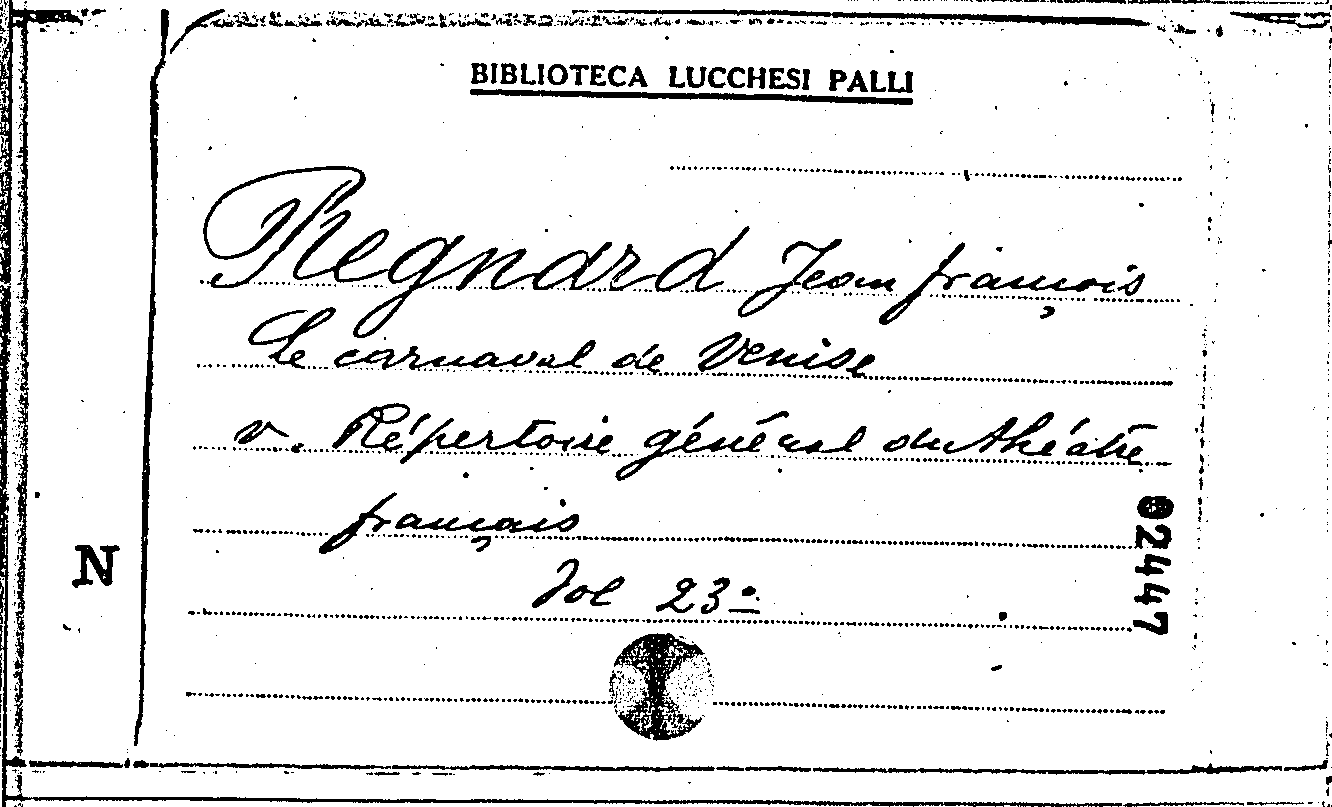 BIBLIOTECA LUCCHESI PALLI
Regnard Jean françois
Le carnaval de Venise
v. Répertoire général du théâtre
français
Vol 23º
N
82447